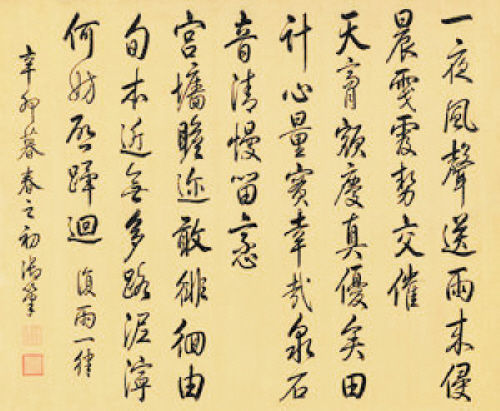 一夜風聲送雨来侵
晨霎霎勢交催
天膏額慶真優矣田
計心量實幸哉泉石
音清慢留恋
宮墻瞻迩敢徘徊由
旬本近無多路泥濘
何妨啓蹕迴 復雨一律
辛卯暮春之初御筆